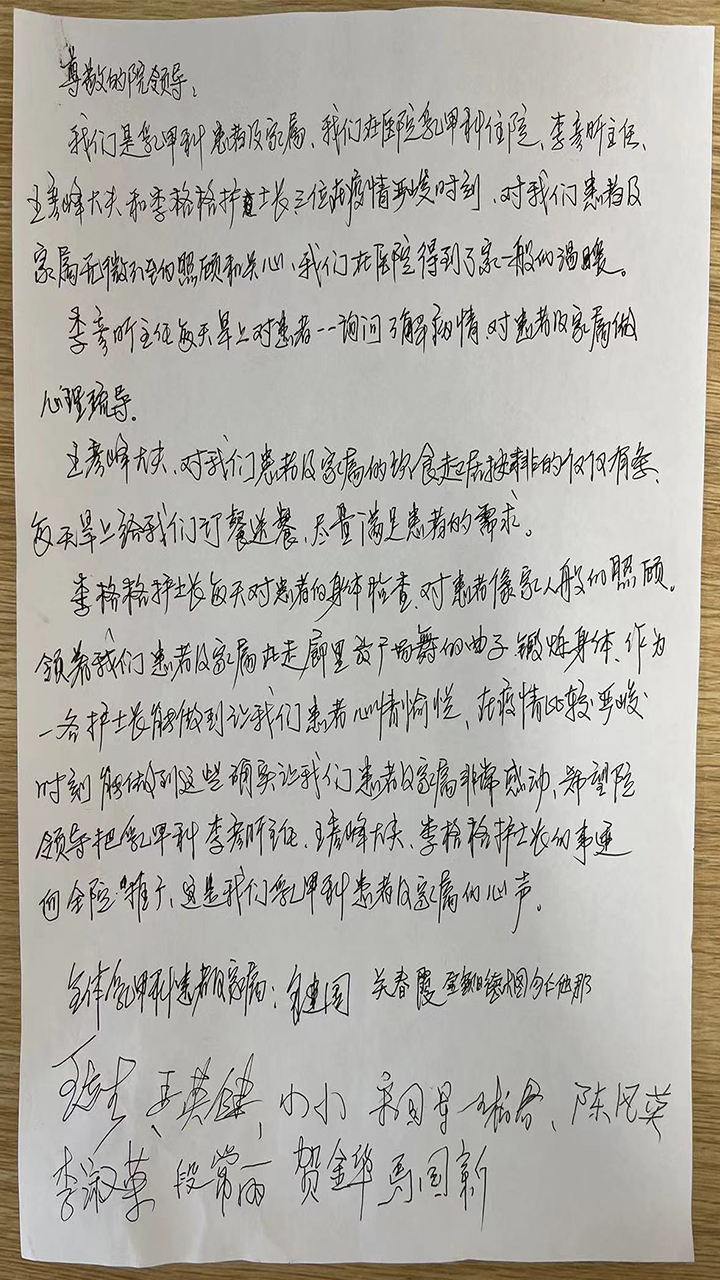 尊敬的院领导：
我们是乳甲科患者及家属、我们在医院乳甲科住院、李彦昕主任、
王彦峰大夫和李格格护士长三位在疫情严峻时刻、对我们患者及
家属无微不至的照顾和关心、我们在医院得到了家一般的温暖。
李彦昕主任每天早上对患者一一询问了解病情、对患者及家属做
心理疏导.
王彦峰大夫、对我们患者及家属的饮食起居按排的仅仅有条、
每天早上给我们订餐送餐、尽量满足患者的需求。
李格格护士长每天对患者的身体检查、对患者像家人般的照顾。
领着我们患者及家属在走廊里放广场舞的曲子锻炼身体、作为
一名护士长能做到让我们患者心情愉悦、在疫情比较严峻
时刻能做到这些确实让我们患者及家属非常感动、希望院
领导把乳甲科李彦昕主任、王彦峰大夫、李格格护士长的事迹
向全院推广、这是我们乳甲科患者及家属的心声。
全体乳甲科患者及家属：建国 关春霞
王英健、小小 陈凤英
李淑革 段常丽 贺金华 马国新